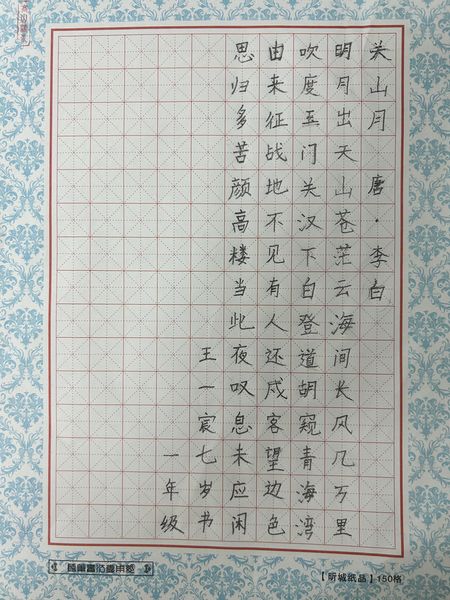 关山月 唐·李白
明月出天山苍茫云海间长风几万里
吹度玉门关汉下白登道胡窥青海湾
由来征战地不见有人还戍客望边色
思归多苦颜高楼当此夜叹息未应闲
王一宸七岁书
一年级
【昕城纸品】150格